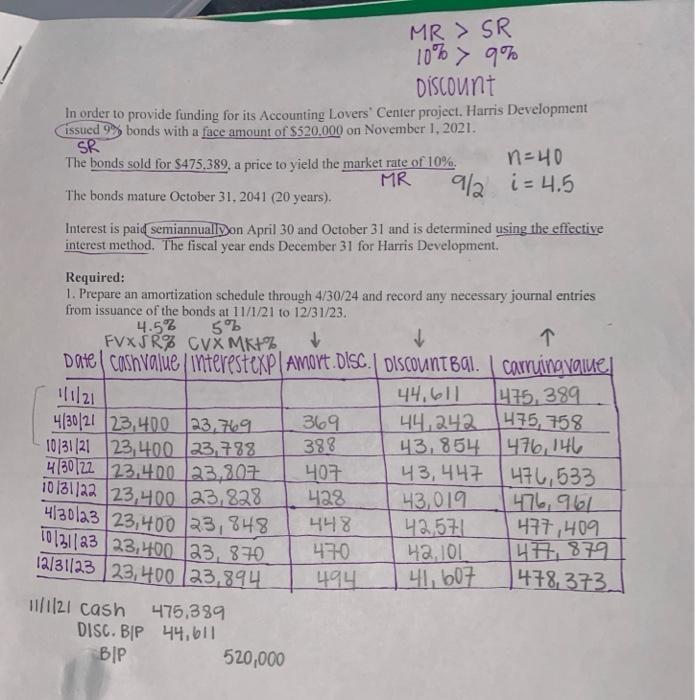 MR > SR
10% > 9%
Discount
In order to provide funding for its Accounting Lovers' Center project, Harris Development
issued 9% bonds with a face amount of $520,000 on November 1, 2021.
SR
The bonds sold for $475,389, a price to yield the market rate of 10%.
n=40
MR
9/2 i = 4.5
The bonds mature October 31, 2041 (20 years).
Interest is paid semiannually on April 30 and October 31 and is determined using the effective
interest method. The fiscal year ends December 31 for Harris Development.
Required:
1. Prepare an amortization schedule through 4/30/24 and record any necessary journal entries
from issuance of the bonds at 11/1/21 to 12/31/23.
4.5% 5%
FVXSR% CVX MKt% ↓ ↓ ↑
Date Cash value Interest exp Amort. Disc. Discount Bal. Carruing value
11/1/21 44,611 475,389
4/30/21 23,400 23,769 369 44,242 475,758
10/31/21 23,400 23,788 388 43,854 476,146
4/30/22 23,400 23,807 407 43,447 476,533
10/31/22 23,400 23,828 428 43,019 476,961
4/30/23 23,400 23,848 448 42,571 477,409
10/31/23 23,400 23,870 470 42,101 477,879
12/31/23 23,400 23,894 494 41,607 478,373
11/1/21 Cash 475,389
DISC. B|P 44,611
B|P 520,000